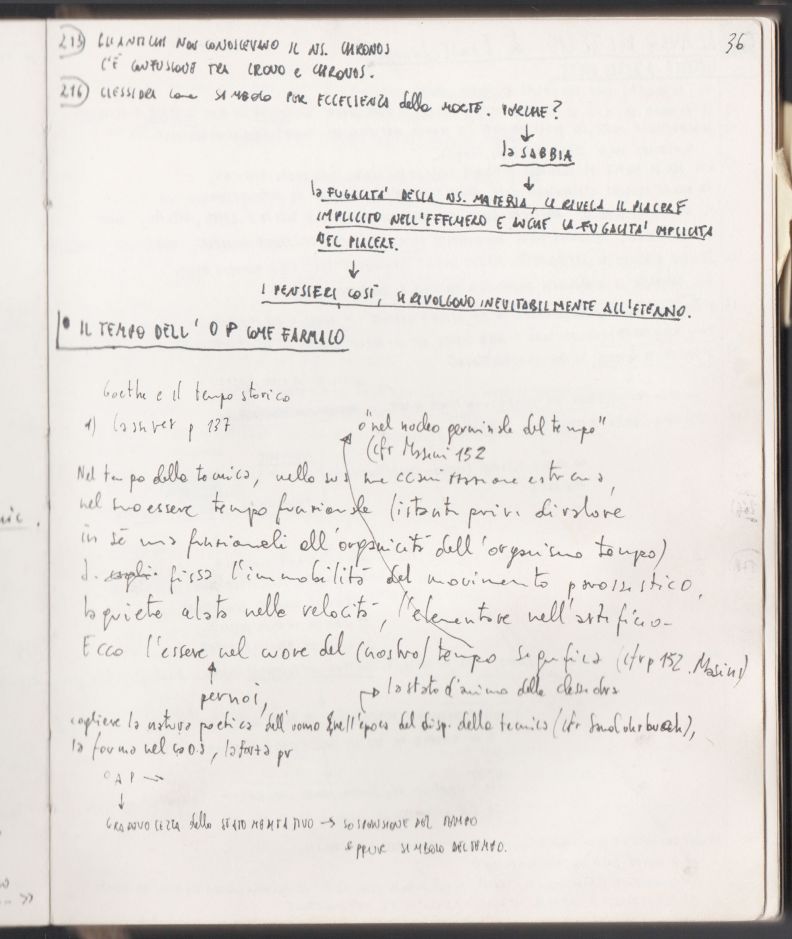 36
213) GLI ANTICHI NON CONOSCEVANO IL NS. CHRONOS
C'È CONFUSIONE TRA CRONO e CHRONOS.
216) CLESSIDRA come SIMBOLO PER ECCELLENZA della MORTE. PERCHE?
la SABBIA
la FUGACITA' DELLA NS. MATERIA, CI RIVELA IL PIACERE
IMPLICITO NELL'EFFIMERO E ANCHE LA FUGACITA' IMPLICITA
NEL PIACERE.
I PENSIERI COSÌ, SI RIVOLGONO INEVITABILMENTE ALL'ETERNO.
• IL TEMPO DELL' O P COME FARMACO
Goethe e il tempo storico
1) p 137
o "nel nocleo germinale del tempo"
(cfr Masini 152
Nel tempo della tecnica, nella sua estrema,
nel suo essere tempo funzionale (istante privo di valore
in sé ma funzionali all'organicità dell'organismo tempo)
fissa l'immobilità del movimento parossistico,
la quiete alata nella velocità, l'elementare nell'artificio-
Ecco l'essere nel cuore del (nostro) tempo significa (cfr p 152. Masini)
per noi,
lo stato d'animo delle clessidre
cogliere la natura poetica dell'uomo nell'epoca del disp. della tecnica (cfr Sanduhrbuch),
la forma nel caos, la forza per
O A P →
GRADEVOLEZZA dello STATO MEDITATIVO → SOSPENSIONE DEL TEMPO
EPPURE SIMBOLO DEL TEMPO.